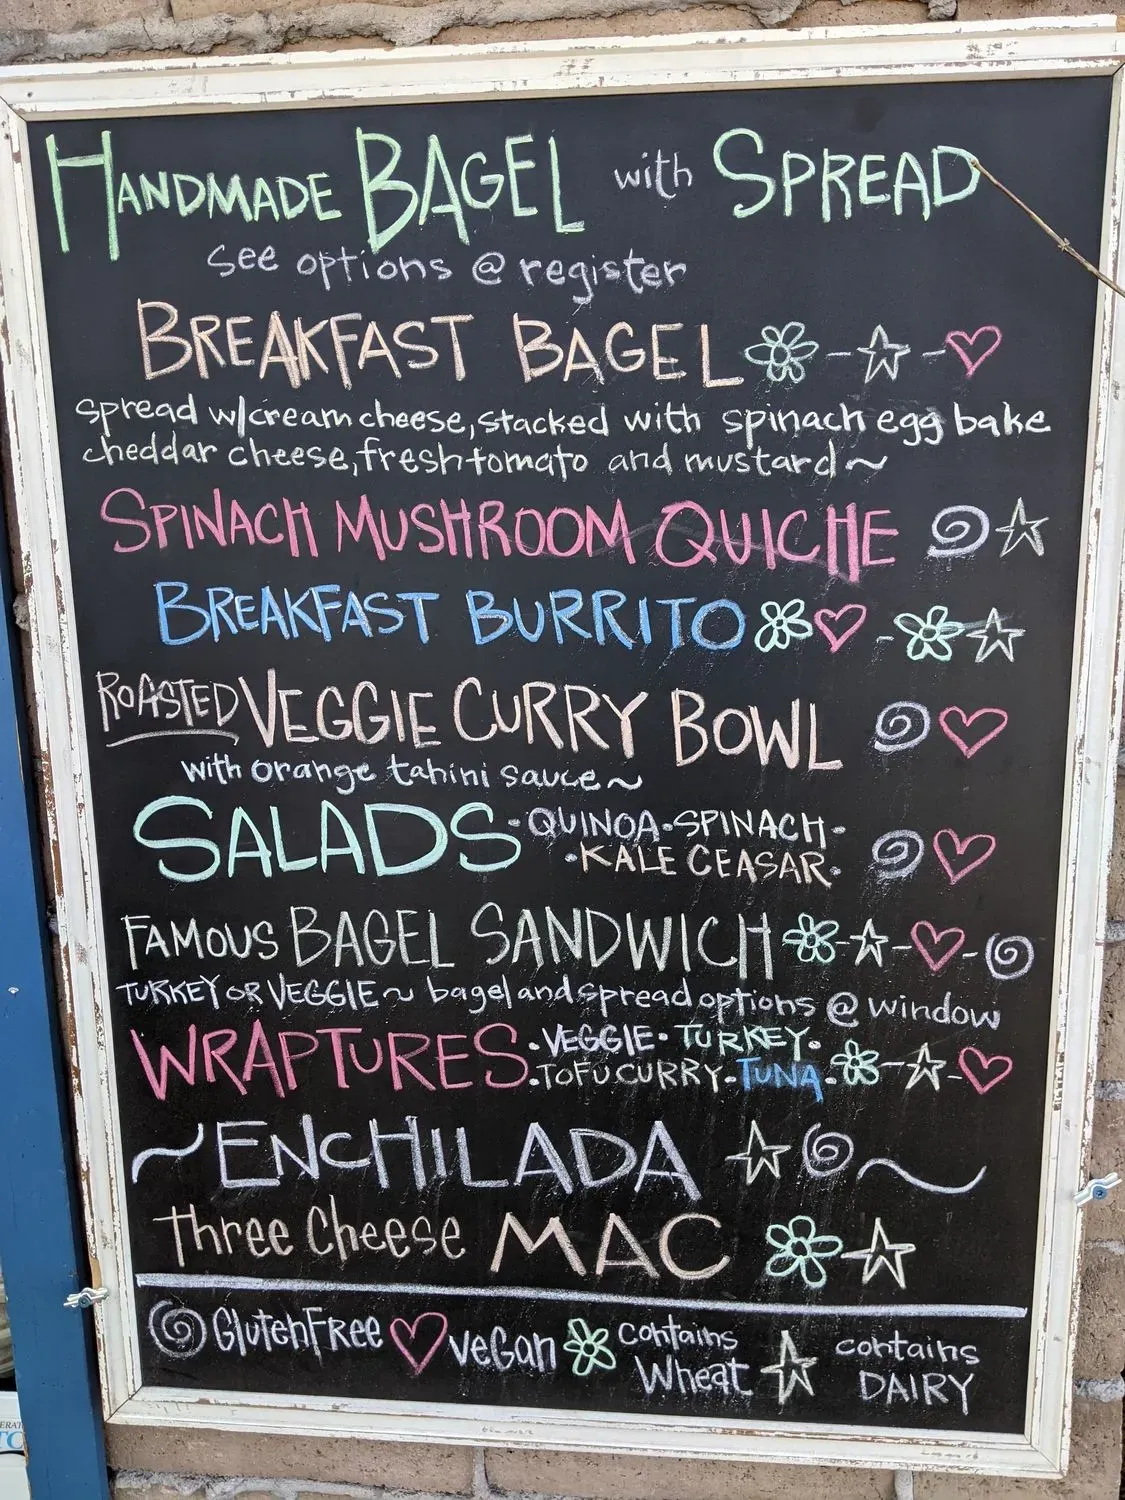 HANDMADE BAGEL with SPREAD
see options @ register
BREAKFAST BAGEL
spread w/cream cheese, stacked with spinach egg bake
cheddar cheese, fresh tomato and mustard~
SPINACH MUSHROOM QUICHE
BREAKFAST BURRITO
ROASTED VEGGIE CURRY BOWL
with orange tahini sauce~
SALADS ·QUINOA·SPINACH·
·KALE CEASAR·
FAMOUS BAGEL SANDWICH
TURKEY OR VEGGIE~ bagel and spread options @ window
WRAPTURES ·VEGGIE·TURKEY·
·TOFU CURRY·TUNA·
~ENCHILADA~
three cheese MAC
GlutenFree vegan contains Wheat contains DAIRY